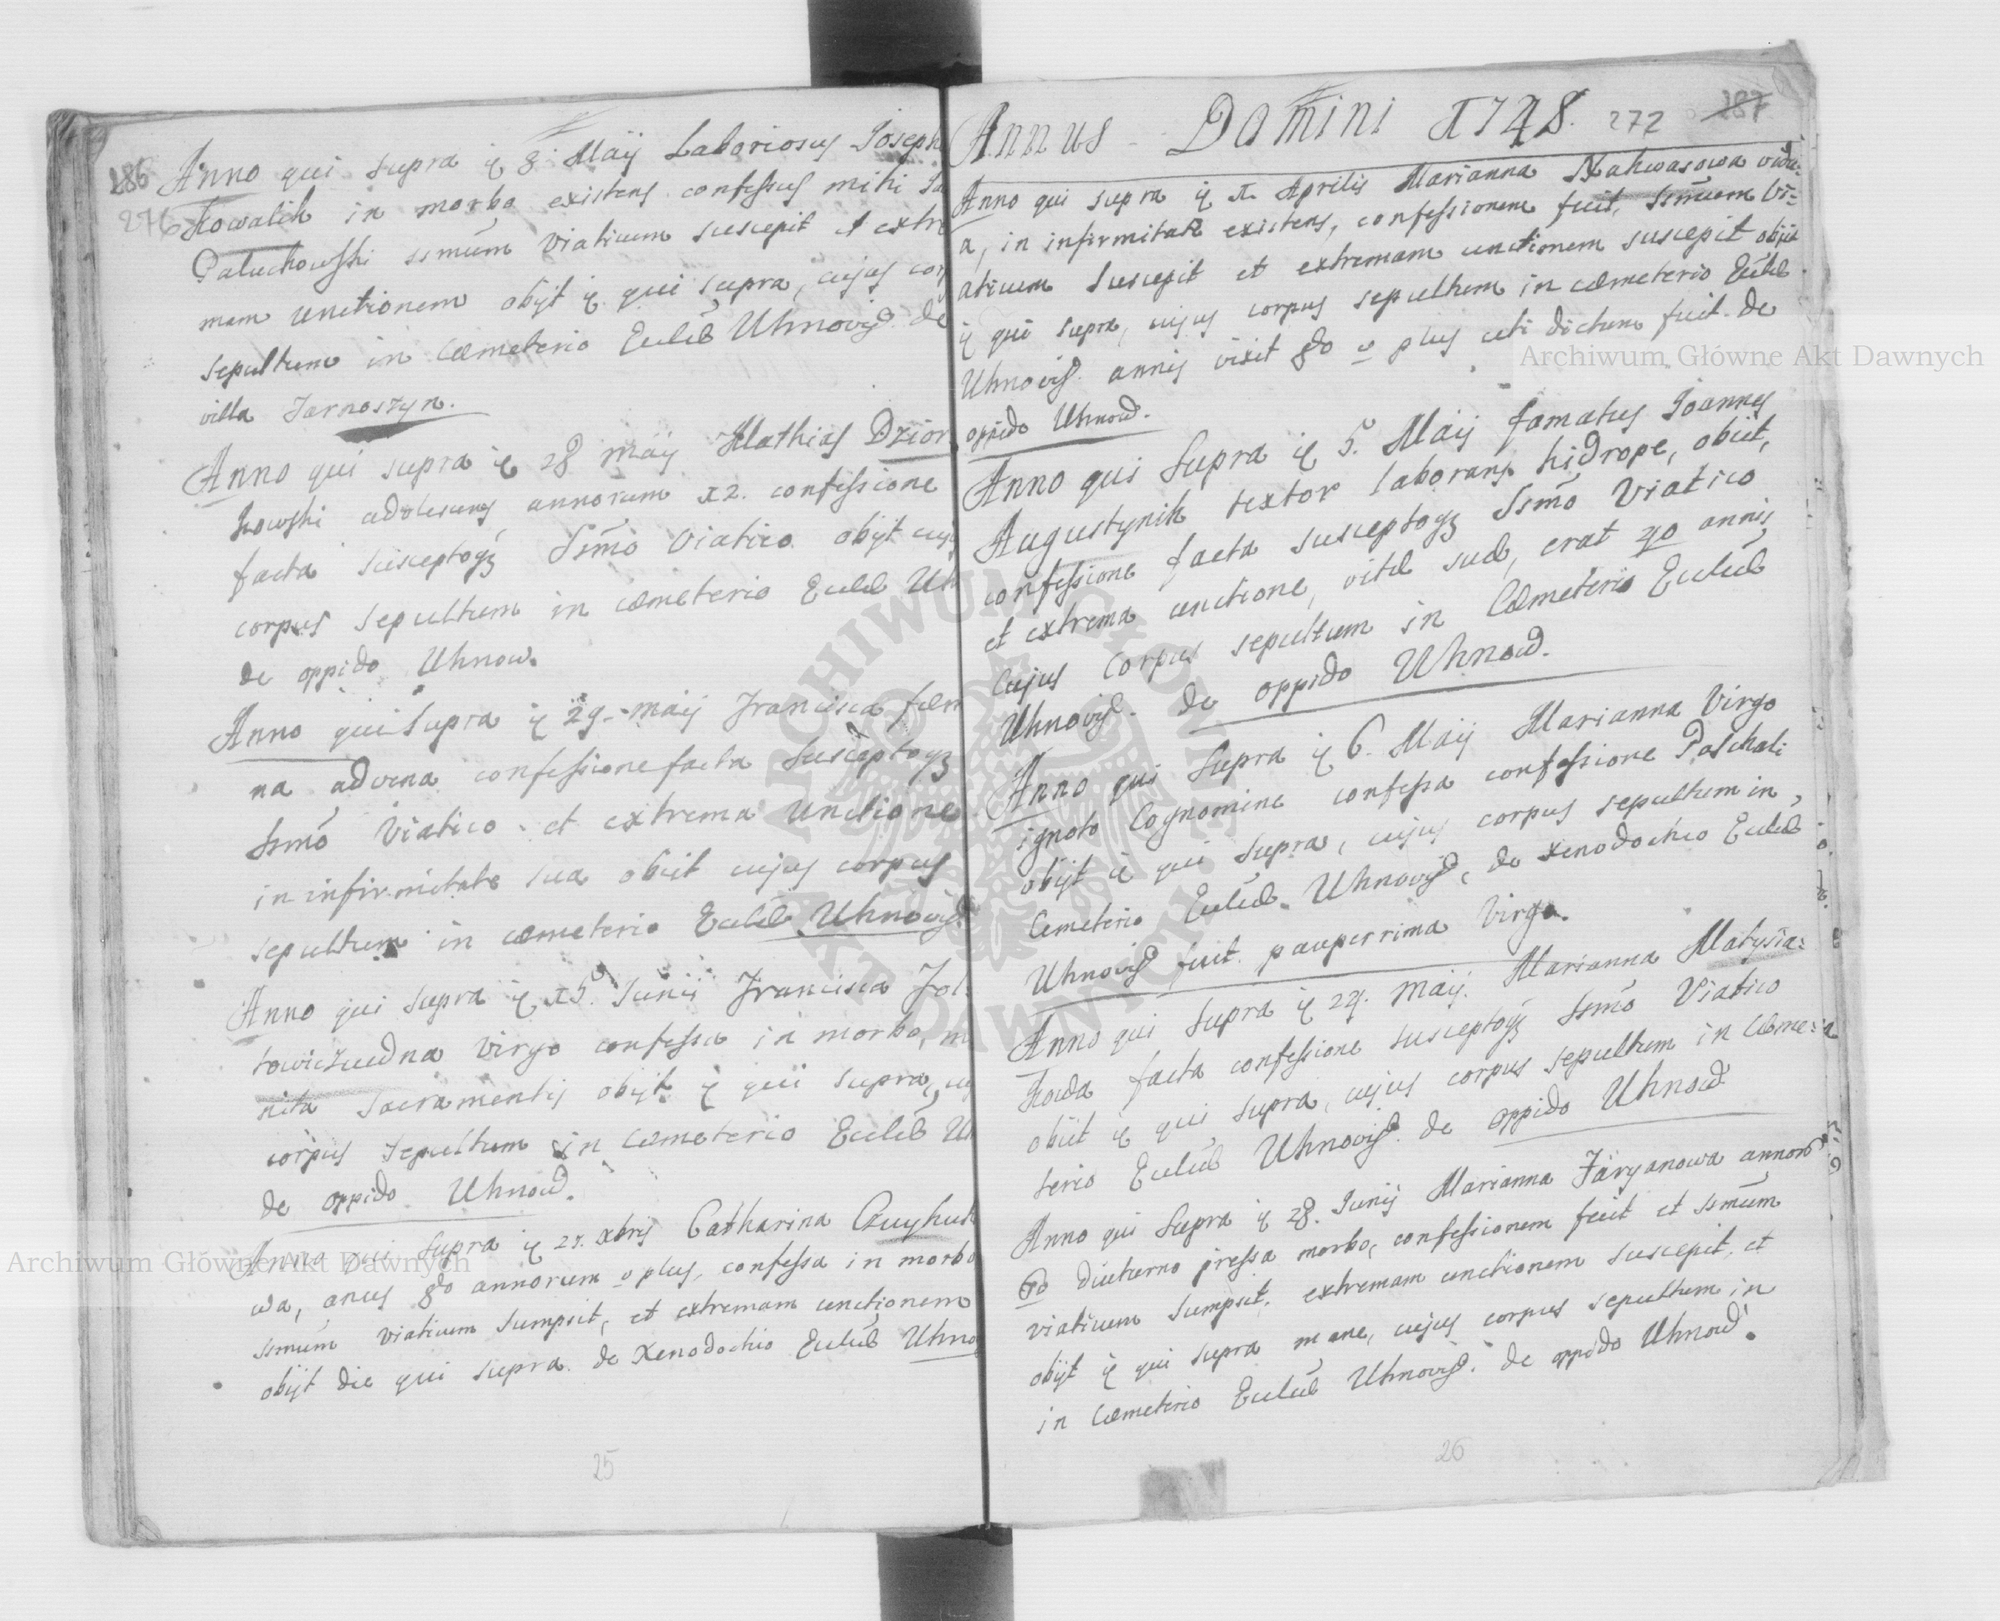 186
276
Anno qui supra ę 8. Maij Laboriosus Joseph
Kowalik in morbo existens confessus mihi
Paluchowski ssmum Viaticum suscepit et extre
mam unctionem obijt ę qui supra, cujus cor
sepultum in Cœmeterio Ecclæ Uhnovię. de
villa Tarnoszyn.
Anno qui supra ę 28 Maij Mathias Dzior
kowski adolescens annorum 12. confessione
facta susceptoqz Ssmo Viatico obijt cujs
corpus sepultum in cœmeterio Ecclæ Uh
de oppido Uhnow.
Anno qui supra ę 29. Maij Francisca fœm
na advena confessione facta susceptoqz
Ssmo Viatico et extrema Unctione
in infirmitate sua obiit cujus corpus
sepultum in cœmeterio Ecclæ Uhnovię
Anno qui supra ę 15. Junij Francisca Fol=
towiczuwna Virgo confessa in morbo, mu
nita Sacramentis obijt ę qui supra, cu
corpus sepultum in Cœmeterio Ecclæ Uh
de oppido Uhnow.
Anno qui supra ę 21. Xbris Catharina
wa, anus 80 annorum v plus, confessa in morbo
ssmum Viaticum sumpsit, et extremam unctionem
obijt die qui supra. de Xenodochio Ecclæ Uhno
25
Annus Domini 1748.
272 187
Anno qui supra ę 1. Aprilis Marianna Nahwasowa vidu=
a, in infirmitate existens, confessionem fecit, ssmum Vi=
aticum suscepit et extremam unctionem suscepit obijt
ę qui supra, cujus corpus sepultum in cœmeterio Ecclæ
Uhnovię. annis vixit 80 v plus uti dictum fuit. de
oppido Uhnow.
Anno qui supra ę 5. Maij famatus Joannes
Augustynik textor laborans hidrope, obiit,
confessione facta susceptoqz Ssmo Viatico
et extrema unctione, vitæ suæ, erat 40 annis
Cujus Corpus sepultum in Cœmeterio Ecclæ
Uhnovię. de oppido Uhnow.
Anno qui supra ę 6. Maij Marianna Virgo
ignoto Cognomine confessa confessione Paschali
obijt ę qui supra, cujus corpus sepultum in
Cemeterio Ecclæ Uhnovię, de Xenodochio Ecclæ
Uhnovię fuit pauperrima Virgo.
Anno qui supra ę 24. Maij. Marianna Matysia=
kowa facta confessione susceptoqz Ssmo Viatico
obiit ę qui supra, cujus corpus sepultum in Cœme=
terio Ecclæ Uhnovię. de oppido Uhnow
Anno qui supra ę 28. Junij Marianna Jaryanowa annor
60 diuturno pressa morbo, confessionem fecit et ssmum
viaticum sumpsit, extremam unctionem suscepit, et
obijt ę qui supra mane, cujus corpus sepultum in
in Cœmeterio Ecclæ Uhnovię. de oppido Uhnow.
26
Archiwum Główne Akt Dawnych
Archiwum Główne Akt Dawnych
ARCHIWUM GŁÓWNE
AKT DAWNYCH